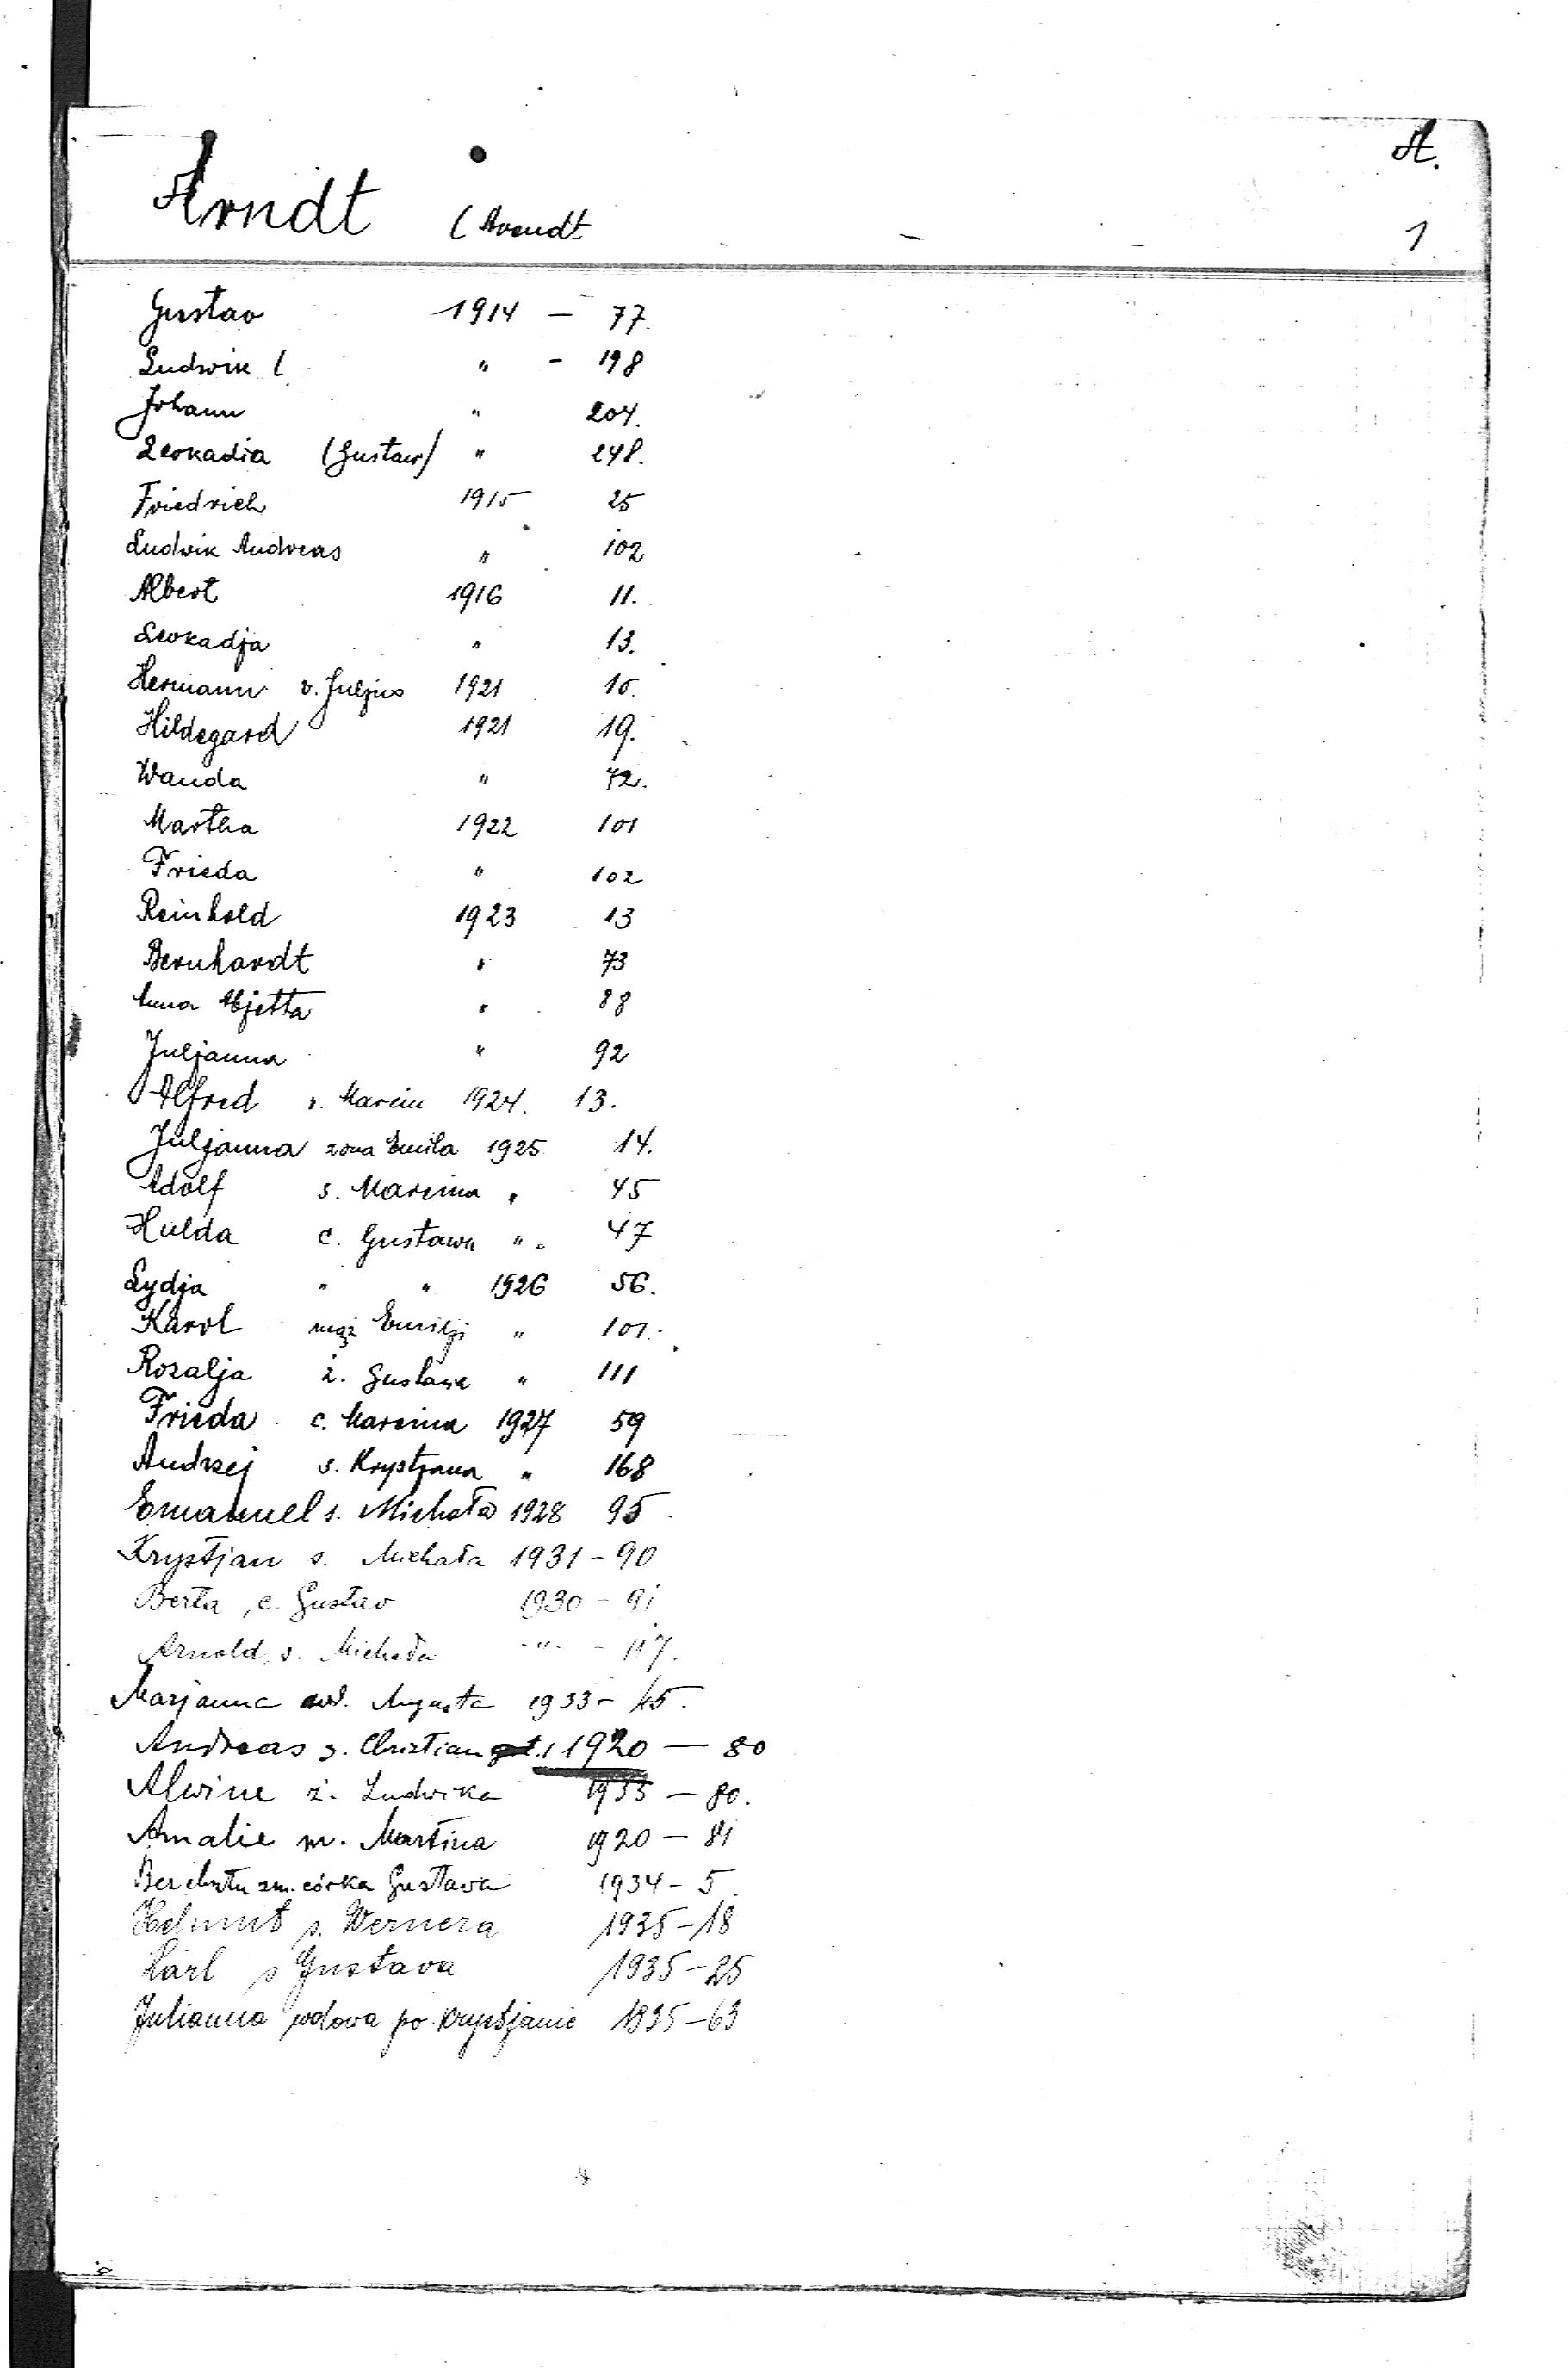 A.
Arndt (Arendt
1
Gustav 1914 – 77.
Ludwik ( " - 198
Johann " 204.
Leokadia (Gustaw) " 248.
Friedrich 1915 25
Ludwik Andreas " 102
Albert 1916 11.
Leokadja " 13.
Hermann v. Juljus 1921 10.
Hildegard 1921 19.
Wanda " 72.
Martha 1922 101
Frieda " 102
Reinhold 1923 13
Bernhardt " 73
Anna " 88
Juljanna " 92
Alfred s. Marcin 1924. 13.
Juljanna żona Emila 1925 14.
Adolf s. Marcina " 45
Hulda c. Gustawa " 47
Lydja " " 1926 56.
Karol mąż Emilji " 101.
Rozalja ż. Gustawa " 111
Frieda c. Marcina 1927 59
Andrzej s. Krystjana " 168
Emanuel s. Michała 1928 95
Krystjan s. Michała 1931 – 90
Berta, c. Gustav 1930 – 91
Arnold, s. Michała -"- – 117.
Marjanna wd. Augusta 1933 – 45.
Andreas s. Christian 1920 — 80
Alwine ż. Ludwika 1933 – 80.
Amalie m. Martina 1920 – 81
Bez chrztu zm. córka Gustava 1934 – 5
Helmut s. Wernera 1935 – 18
Karl s Gustava 1935 – 25
Julianna wdova po Krystjanie 1835 – 63